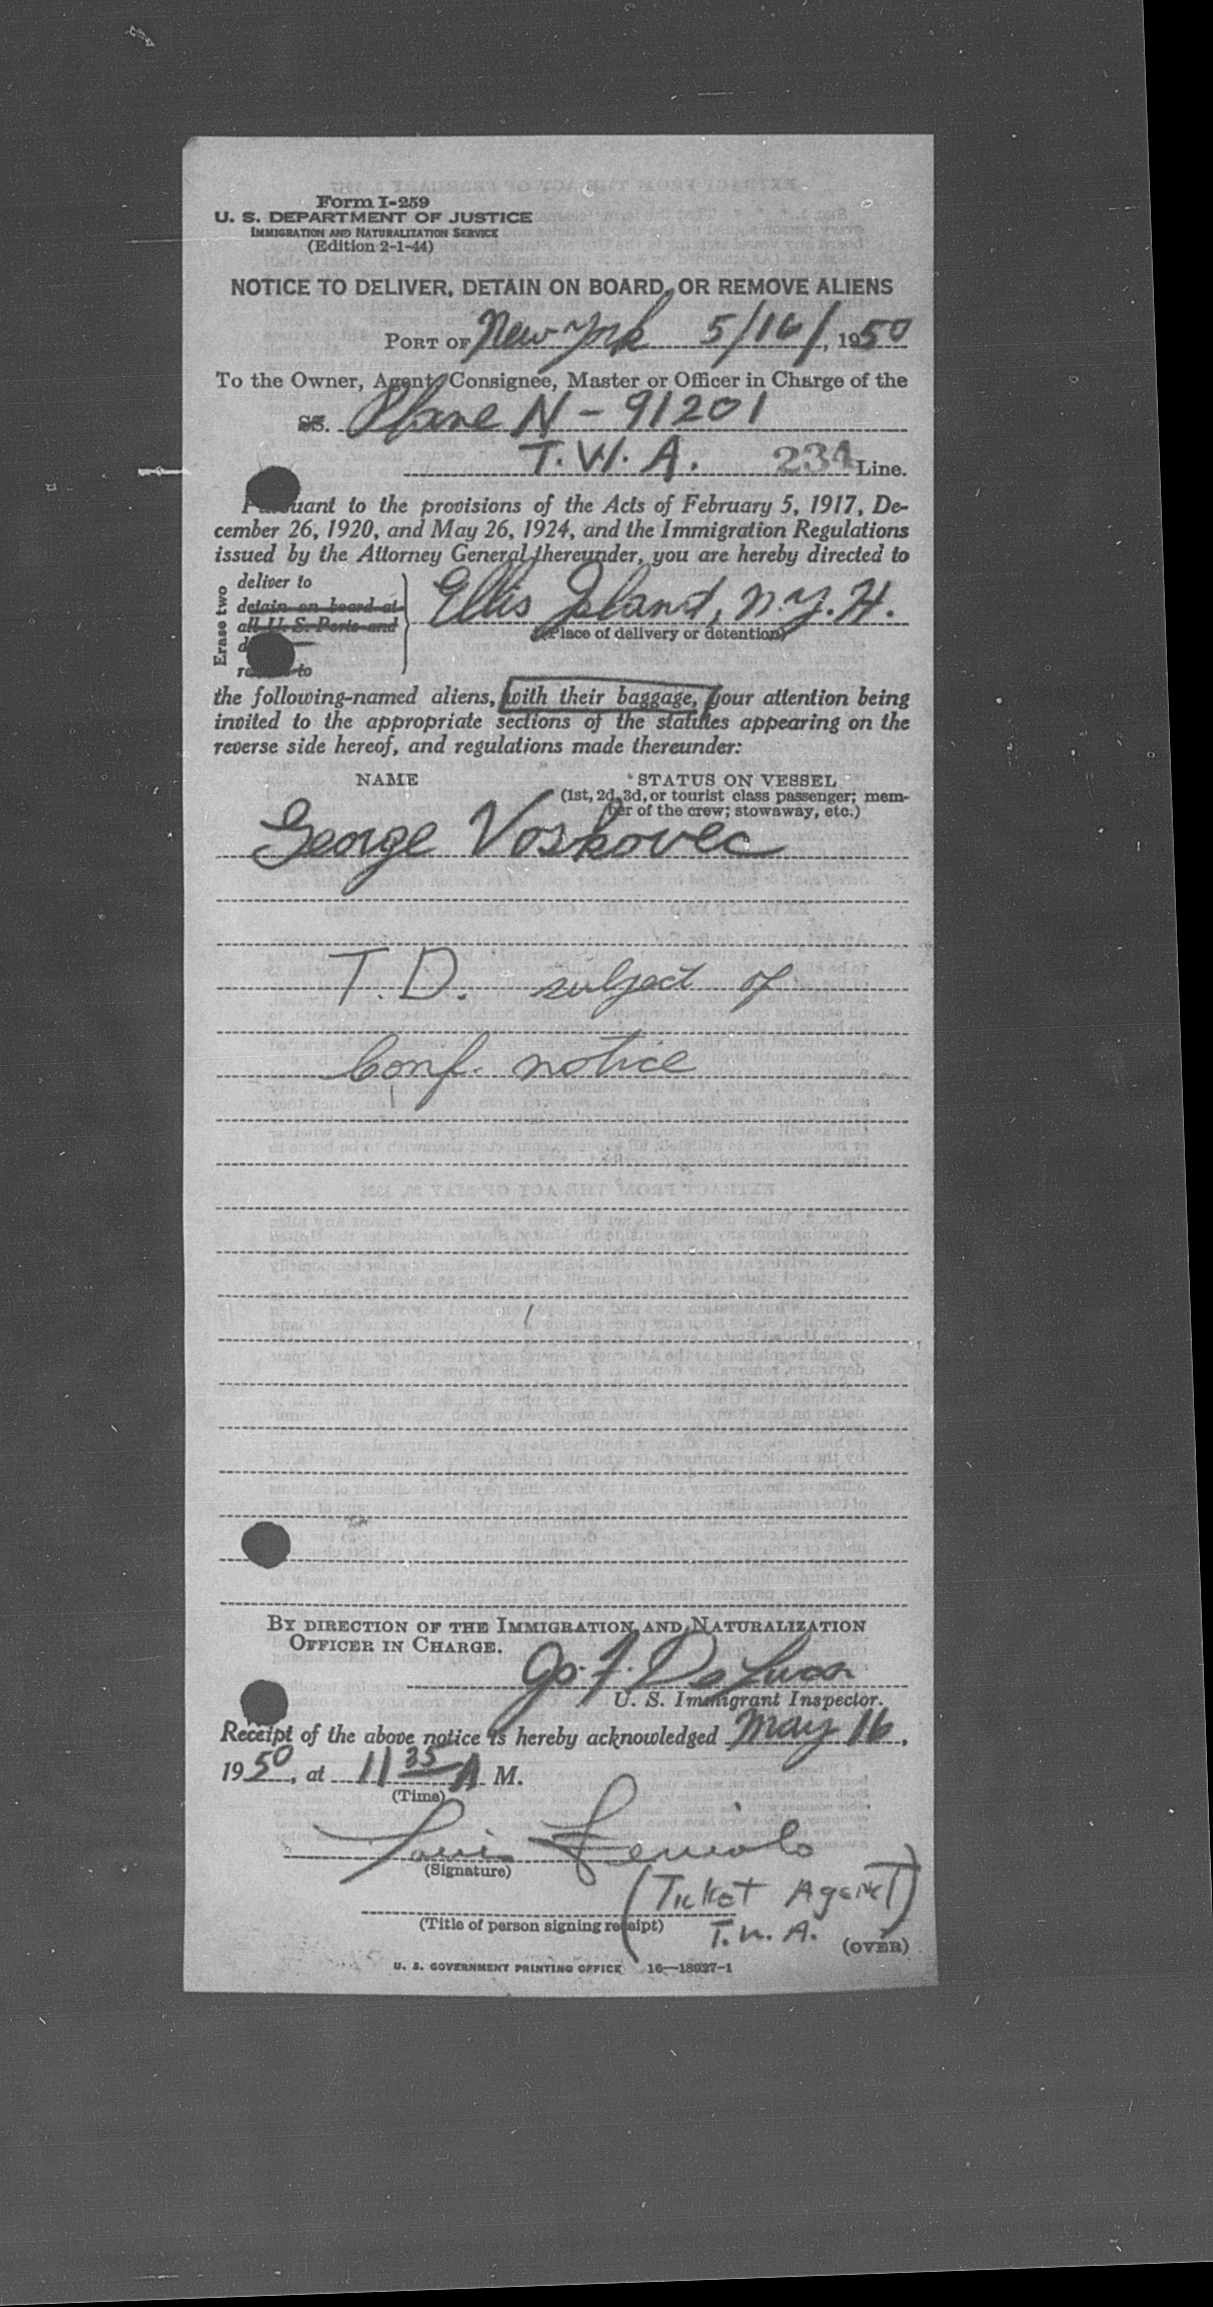 Form I-259
U. S. DEPARTMENT OF JUSTICE
IMMIGRATION AND NATURALIZATION SERVICE
(Edition 2-1-44)
NOTICE TO DELIVER, DETAIN ON BOARD, OR REMOVE ALIENS
PORT OF New York 5/16/, 1950
To the Owner, Agent, Consignee, Master or Officer in Charge of the
SS. Plane N-91201
T.W.A. 234 Line.
Pursuant to the provisions of the Acts of February 5, 1917, De-
cember 26, 1920, and May 26, 1924, and the Immigration Regulations
issued by the Attorney General thereunder, you are hereby directed to
Erase two
deliver to
detain on board at
all U. S. Ports and
Ellis Island, N.Y.H.
(Place of delivery or detention)
the following-named aliens, with their baggage, your attention being
invited to the appropriate sections of the statutes appearing on the
reverse side hereof, and regulations made thereunder:
NAME STATUS ON VESSEL
(1st, 2d, 3d, or tourist class passenger; mem-
ber of the crew; stowaway, etc.)
George Voskovec
T.D. subject of
Conf. notice
BY DIRECTION OF THE IMMIGRATION AND NATURALIZATION
OFFICER IN CHARGE.
U. S. Immigrant Inspector.
Receipt of the above notice is hereby acknowledged May 16,
1950, at 11 35 A M.
(Time)
Louis
(Signature)
(Ticket Agent)
(Title of person signing receipt) T.W.A.
(OVER)
U. S. GOVERNMENT PRINTING OFFICE 16—18027-1